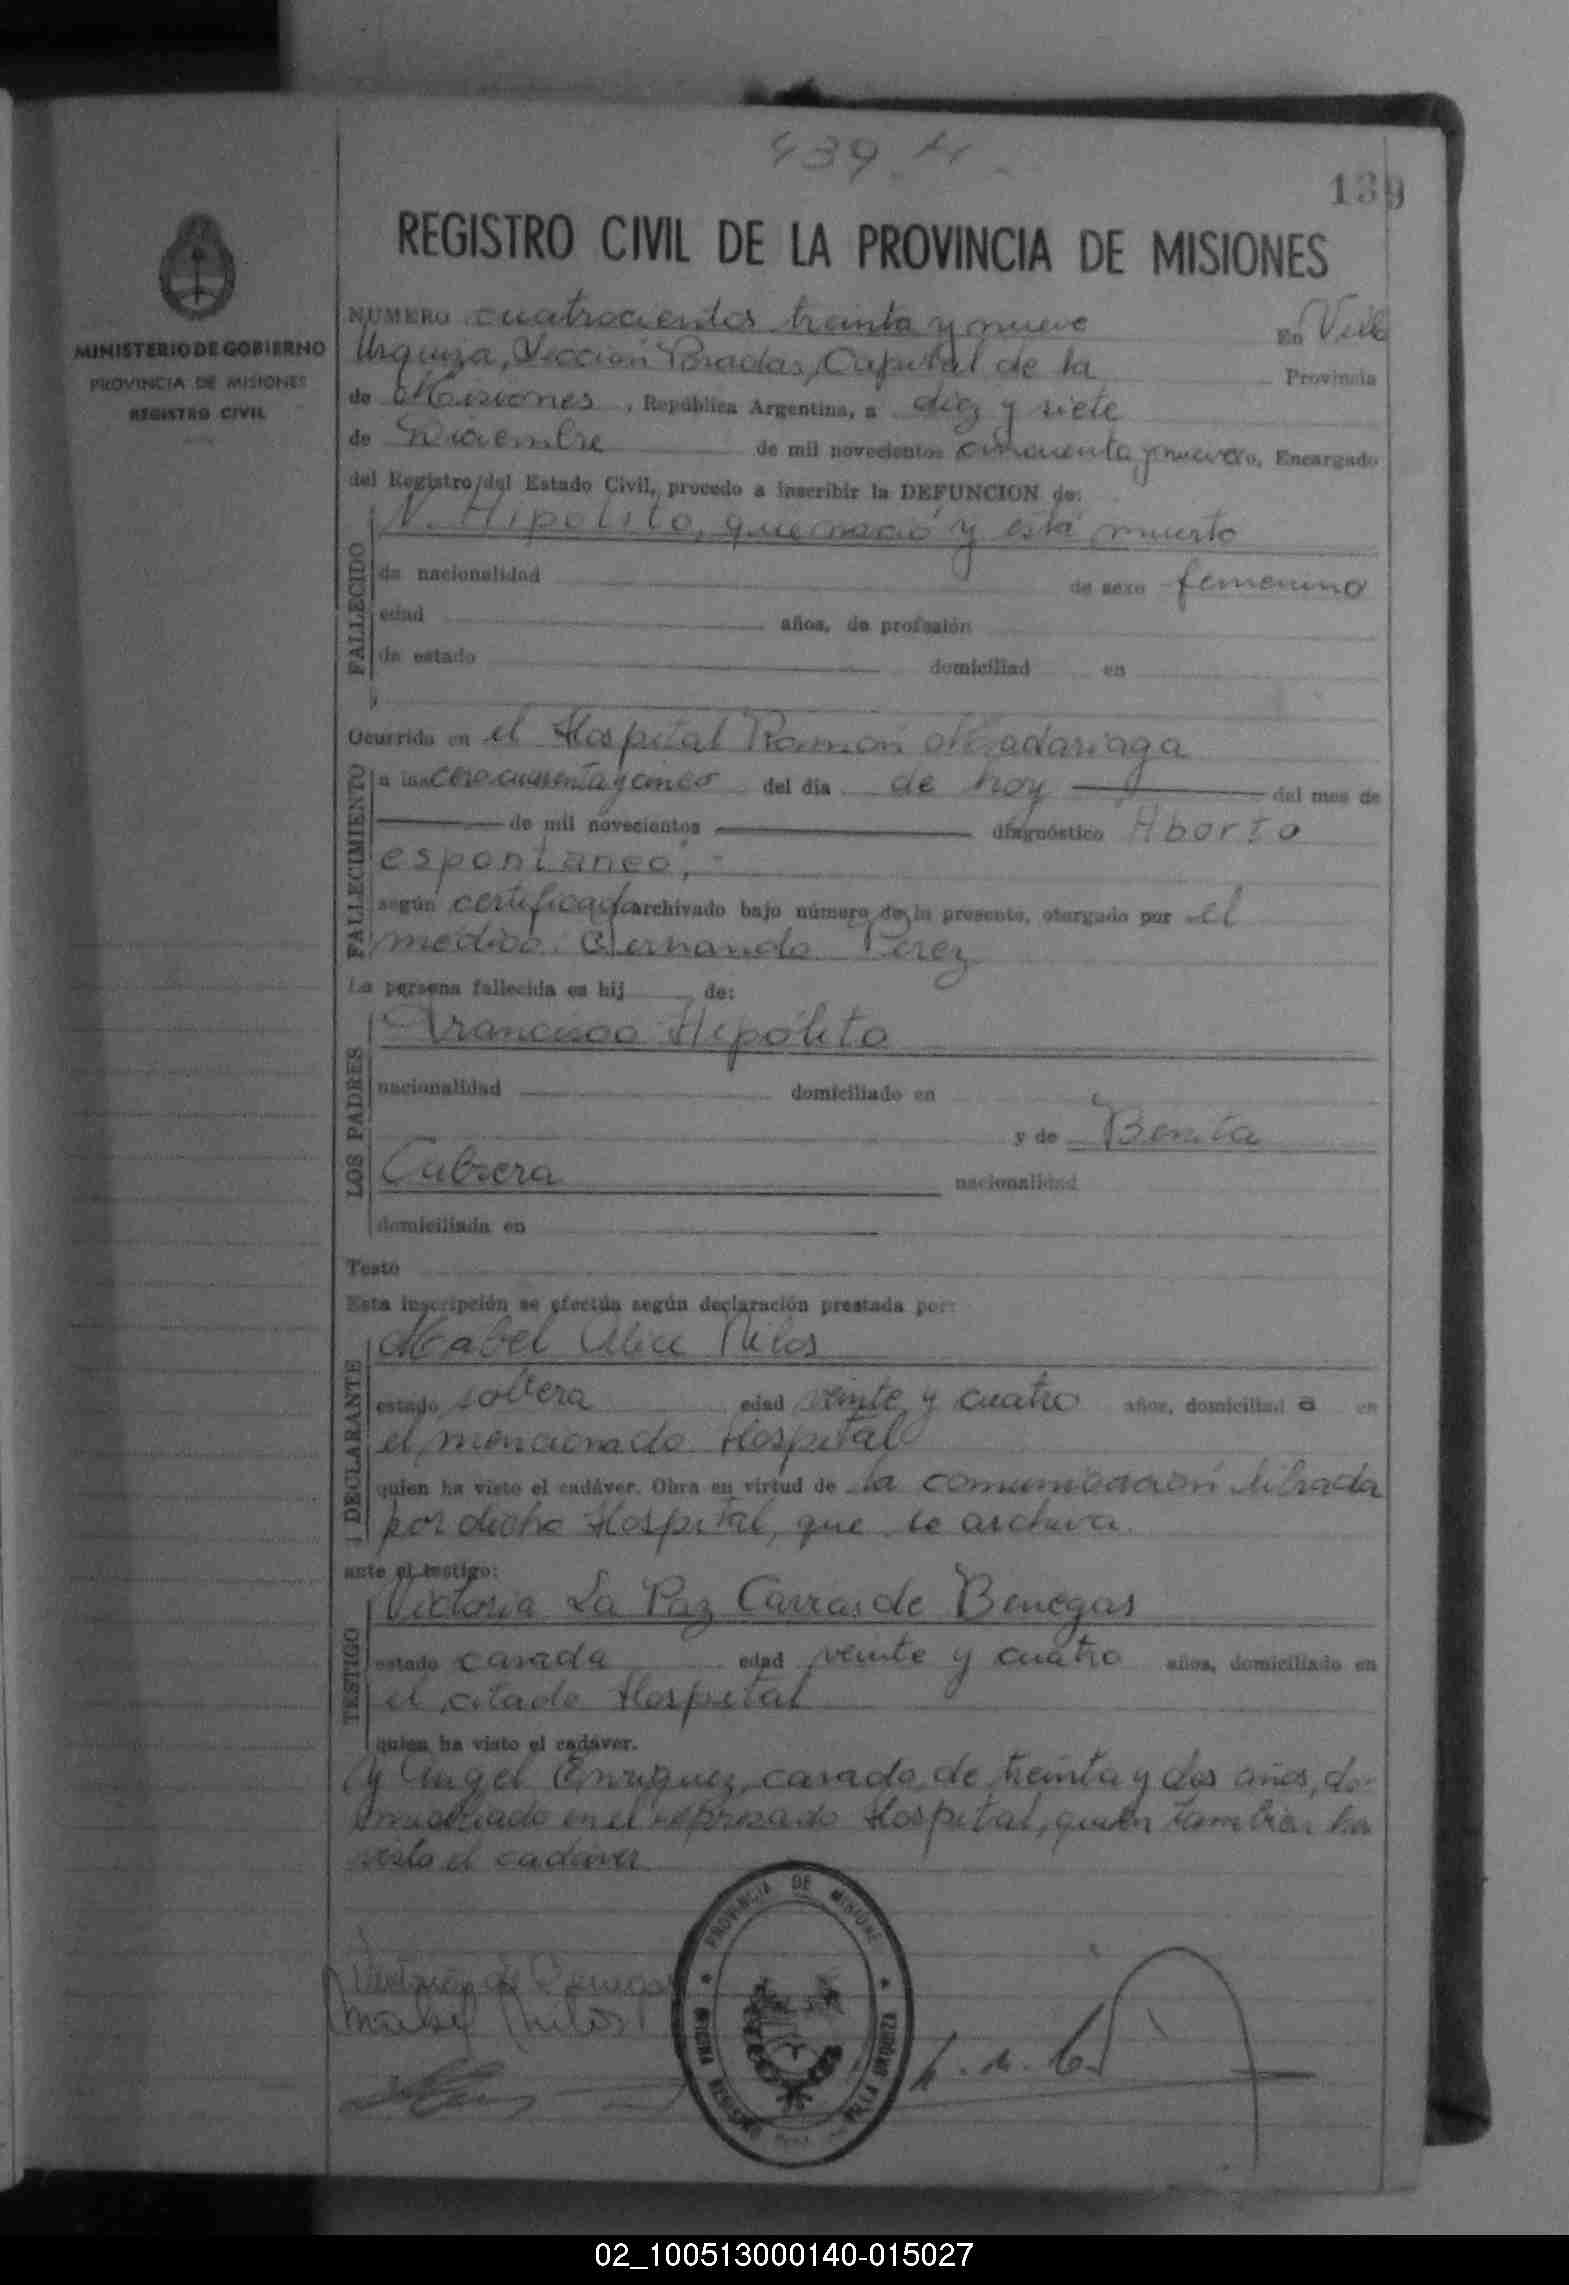 439.
139
MINISTERIO DE GOBIERNO
PROVINCIA DE MISIONES
REGISTRO CIVIL
REGISTRO CIVIL DE LA PROVINCIA DE MISIONES
NUMERO cuatrocientos treinta y nueve En Villa
Urquiza, Sección Posadas, Capital de la Provincia
de Misiones, República Argentina, a diez y siete
de Diciembre de mil novecientos cincuenta y nueve yo, Encargado
del Registro del Estado Civil, procedo a inscribir la DEFUNCION de:
FALLECIDO
N. Hipolito, que nació y está muerto
de nacionalidad de sexo femenino
edad años, de profesión
de estado domiciliad en
Ocurrido en el Hospital Ramón Madariaga
FALLECIMIENTO
a las cero cuarenta y cinco del día de hoy del mes de
de mil novecientos diagnóstico Aborto
espontaneo,
según certificado archivado bajo número de la presente, otorgado por el
médico Hernando Perez
La persona fallecida es hij de:
LOS PADRES
Francisco Hipólito
nacionalidad domiciliado en
y de Benita
Cabrera nacionalidad
domiciliada en
Testó
Esta inscripción se efectúa según declaración prestada por:
DECLARANTE
Mabel Alice Milos
estado soltera edad veinte y cuatro años, domiciliad a en
el mencionado Hospital
quien ha visto el cadáver. Obra en virtud de la comunicación librada
por dicho Hospital, que se archiva.
ante el testigo:
TESTIGO
Victoria La Paz Carras de Benegas
estado casada edad veinte y cuatro años, domiciliado en
el citado Hospital
quien ha visto el cadáver.
y Angel Enriquez, casado, de treinta y dos años, do-
miciliado en el expresado Hospital, quien tambien ha
visto el cadáver
Victoria de Benegas
Mabel Milos
PROVINCIA DE MISIONES
OFICINA REGISTRO VILLA URQUIZA
02_100513000140-015027